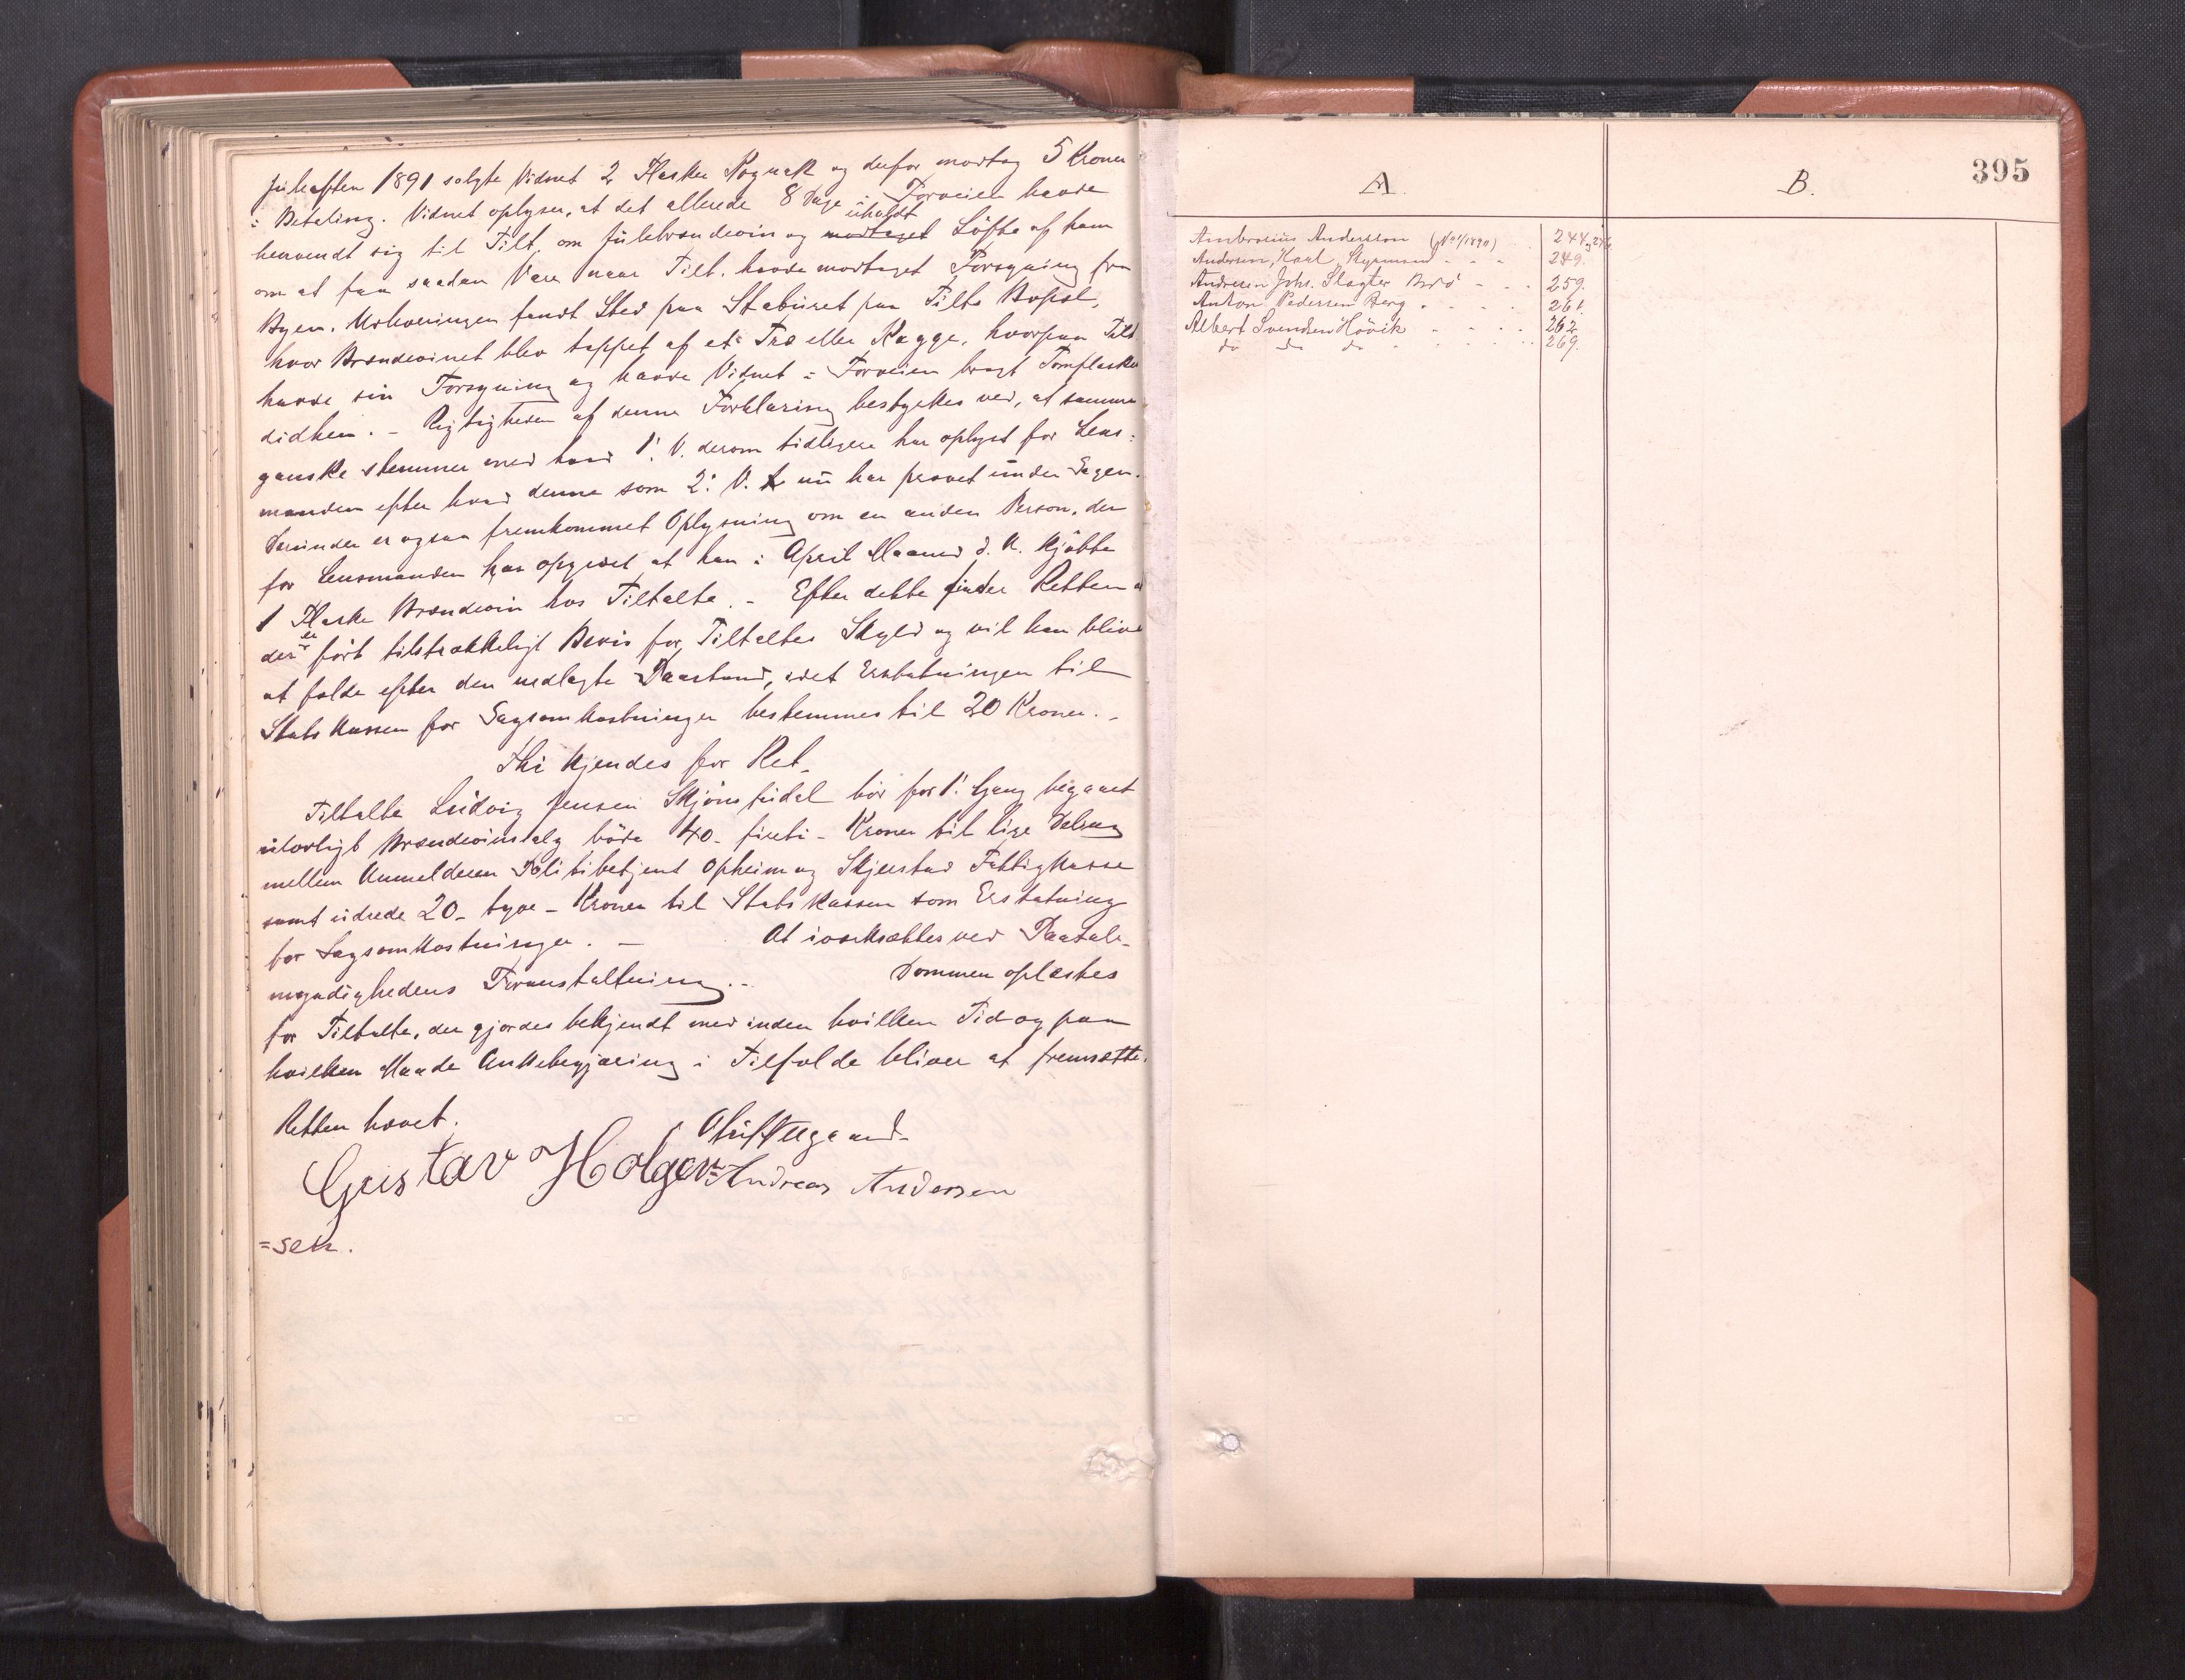 Juleaften 1891 solgte Vidnet 2 Flasker Kognak og derfor modtog 5 Kroner
i Betaling. Vidnet oplyser, at det allerede 8 Dage i Forveien havde
henvendt sig til Tilt. om Julebrændevin og modtaget udholdt Löfte af ham
om at faa saadan Vare naar Tilt. havde modtaget Forsyning fra
Byen. Udleveringen fandt Sted paa Stabüret paa Tilts Bopæl,
hvor Brændevinet blev tappet af et Træ eller Kagge, hvorpaa Tilt.
havde sin Forsyning og havde Vidnet i Forveien bragt Tomflasker
didhen. - Rigtigheden af denne Forklaring bestyrkes ved, at samme
ganske stemmer med hvad 1' V. derom tidligere har oplyst for Lens-
manden efter hvad denne som 2' V. nü har provet ünder Sagen.
Heründer er ogsaa fremkommet Oplysning om en anden Person, der
for Lensmanden har opgivet at han i April Maaned d. A. kjøbte
1 Flaske Brændevin hos Tiltalte. - Efter dette finder Retten at
der er fört tilstrækkeligt Bevis for Tiltaltes Skyld og vil han blive
at fælde efter den nedlagte Paastand, idet Erstatningen til
Statskassen for Sagsomkostninger bestemmes til 20 Kroner. -
Thi kjendes for Ret.
Tiltalte Lüdvig Jensen bör for 1' Gang begaaet
ülovligt Brændevinsalg böde 40 - firti - Kroner til lige Deling
mellem Anmelderen Politibetjent Opheim og Skjerstad Fattigkasse
samt üdrede 20 - tyve - Kroner til Statskassen som Erstatning
for Sagsomkostninger. - At iværksættes ved Paatale-
myndighedens Foranstaltning. -
Dommen oplæstes
for Tiltalte, der gjordes bekjendt med inden hvilken Tid og paa
hvilken Maade Ankebegjæring i Tilfælde bliver at fremsætte.
Retten hævet.
Gustav Holger= Andreas Andersen
=sen.
395
A.
B.
Ambrosius Andersson (No 1/1890) 244, 276
Andersen, Karl, Styrmand - - - 249.
Andresen Johs. Slagter Bodö - - - 259.
Anton Pedersen Berg - - - 261.
Albert Svendsen Hövik - - - 262
do do do - - - 269.